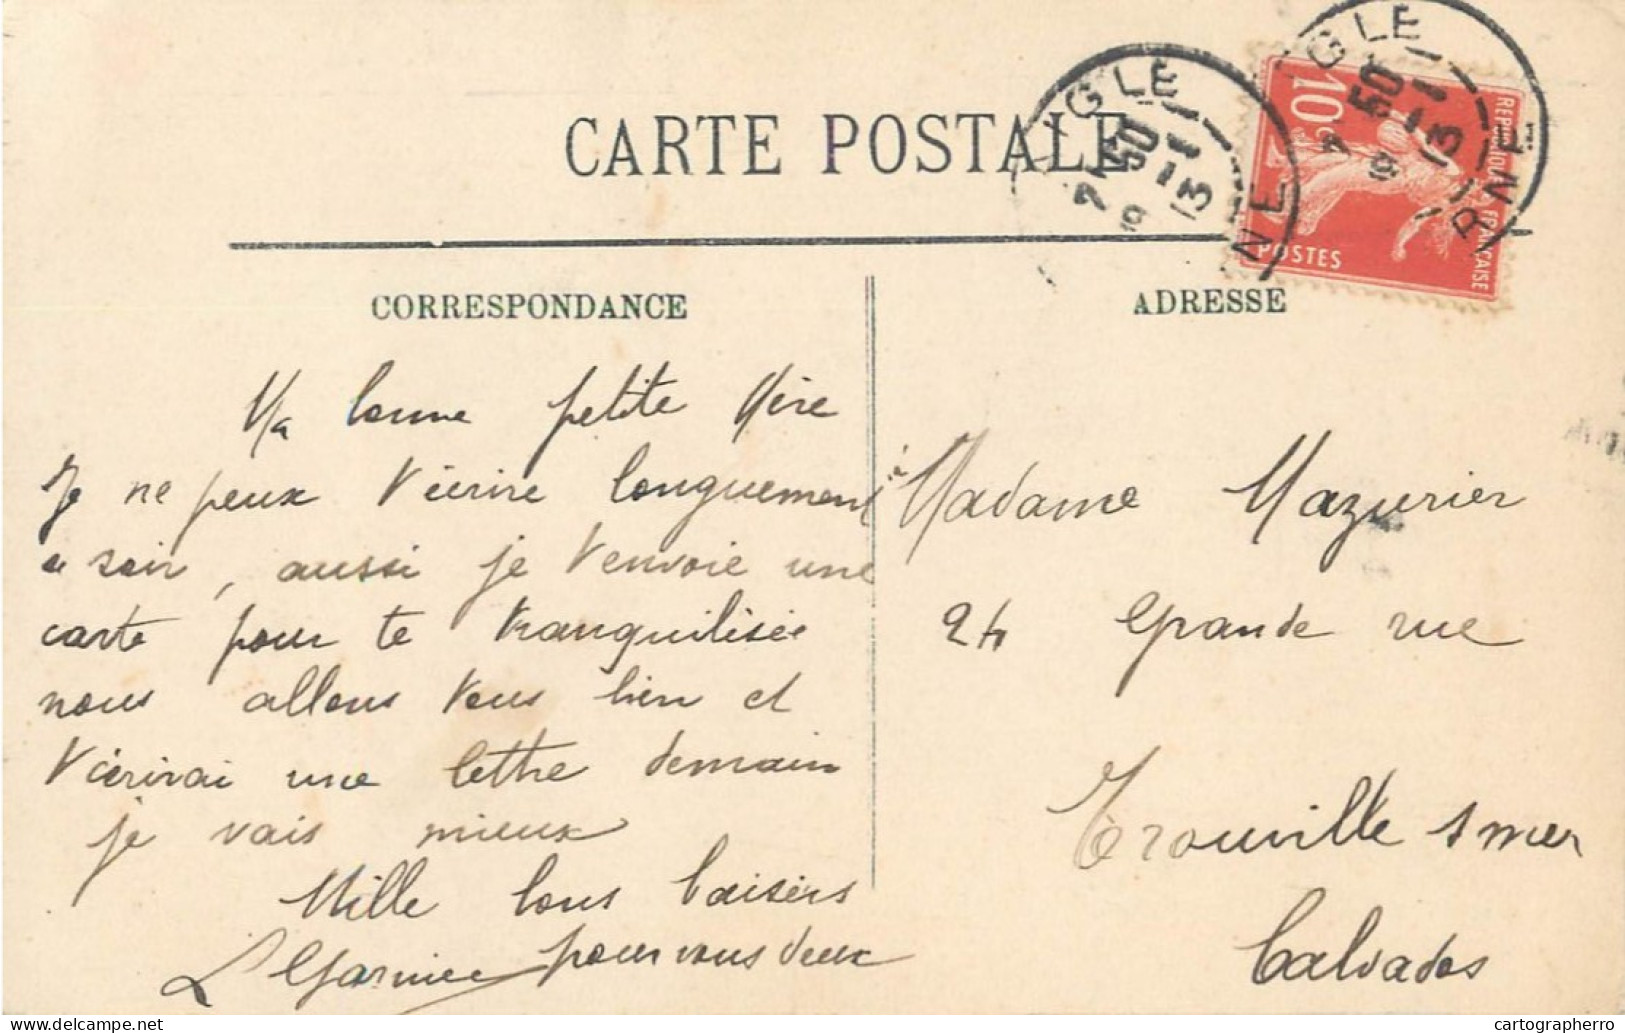 CARTE POSTALE
GLE
7 50
1-1
13
NE
GLE
7 50
1-1
13
RNE
10c
REPUBLIQUE FRANÇAISE
POSTES
CORRESPONDANCE
Ma bonne petite Mère
Je ne peux t'écrire longuement
ce soir, aussi je t'envoie une
carte pour te tranquilisée
nous allons tous bien et
t'écrirai une lettre demain
je vais mieux
Mille bons baisers
pour vous deux
L Garnier
ADRESSE
à Madame Mazurier
24 Grande rue
Trouville s mer
Calvados
delcampe.net
cartographerro